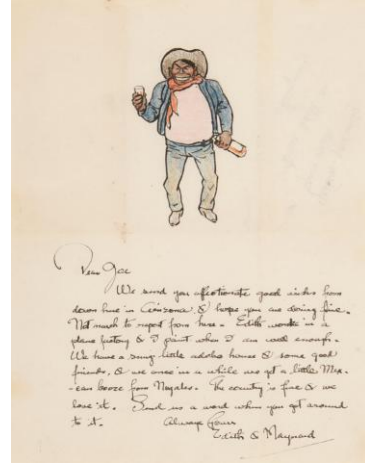 Dear Joe
We send you affectionate good wishes from
down here in Arizona & hope you are doing fine.
Not much to report from here - Edith works in a
plane factory & I paint when I am well enough.
We have a snug little adobe house & some good
friends, & we once in a while we get a little Mex-
-ican booze from Nogales. The country is fine & we
love it. Send us a word when you get around
to it. Always Yours
Edith & Maynard